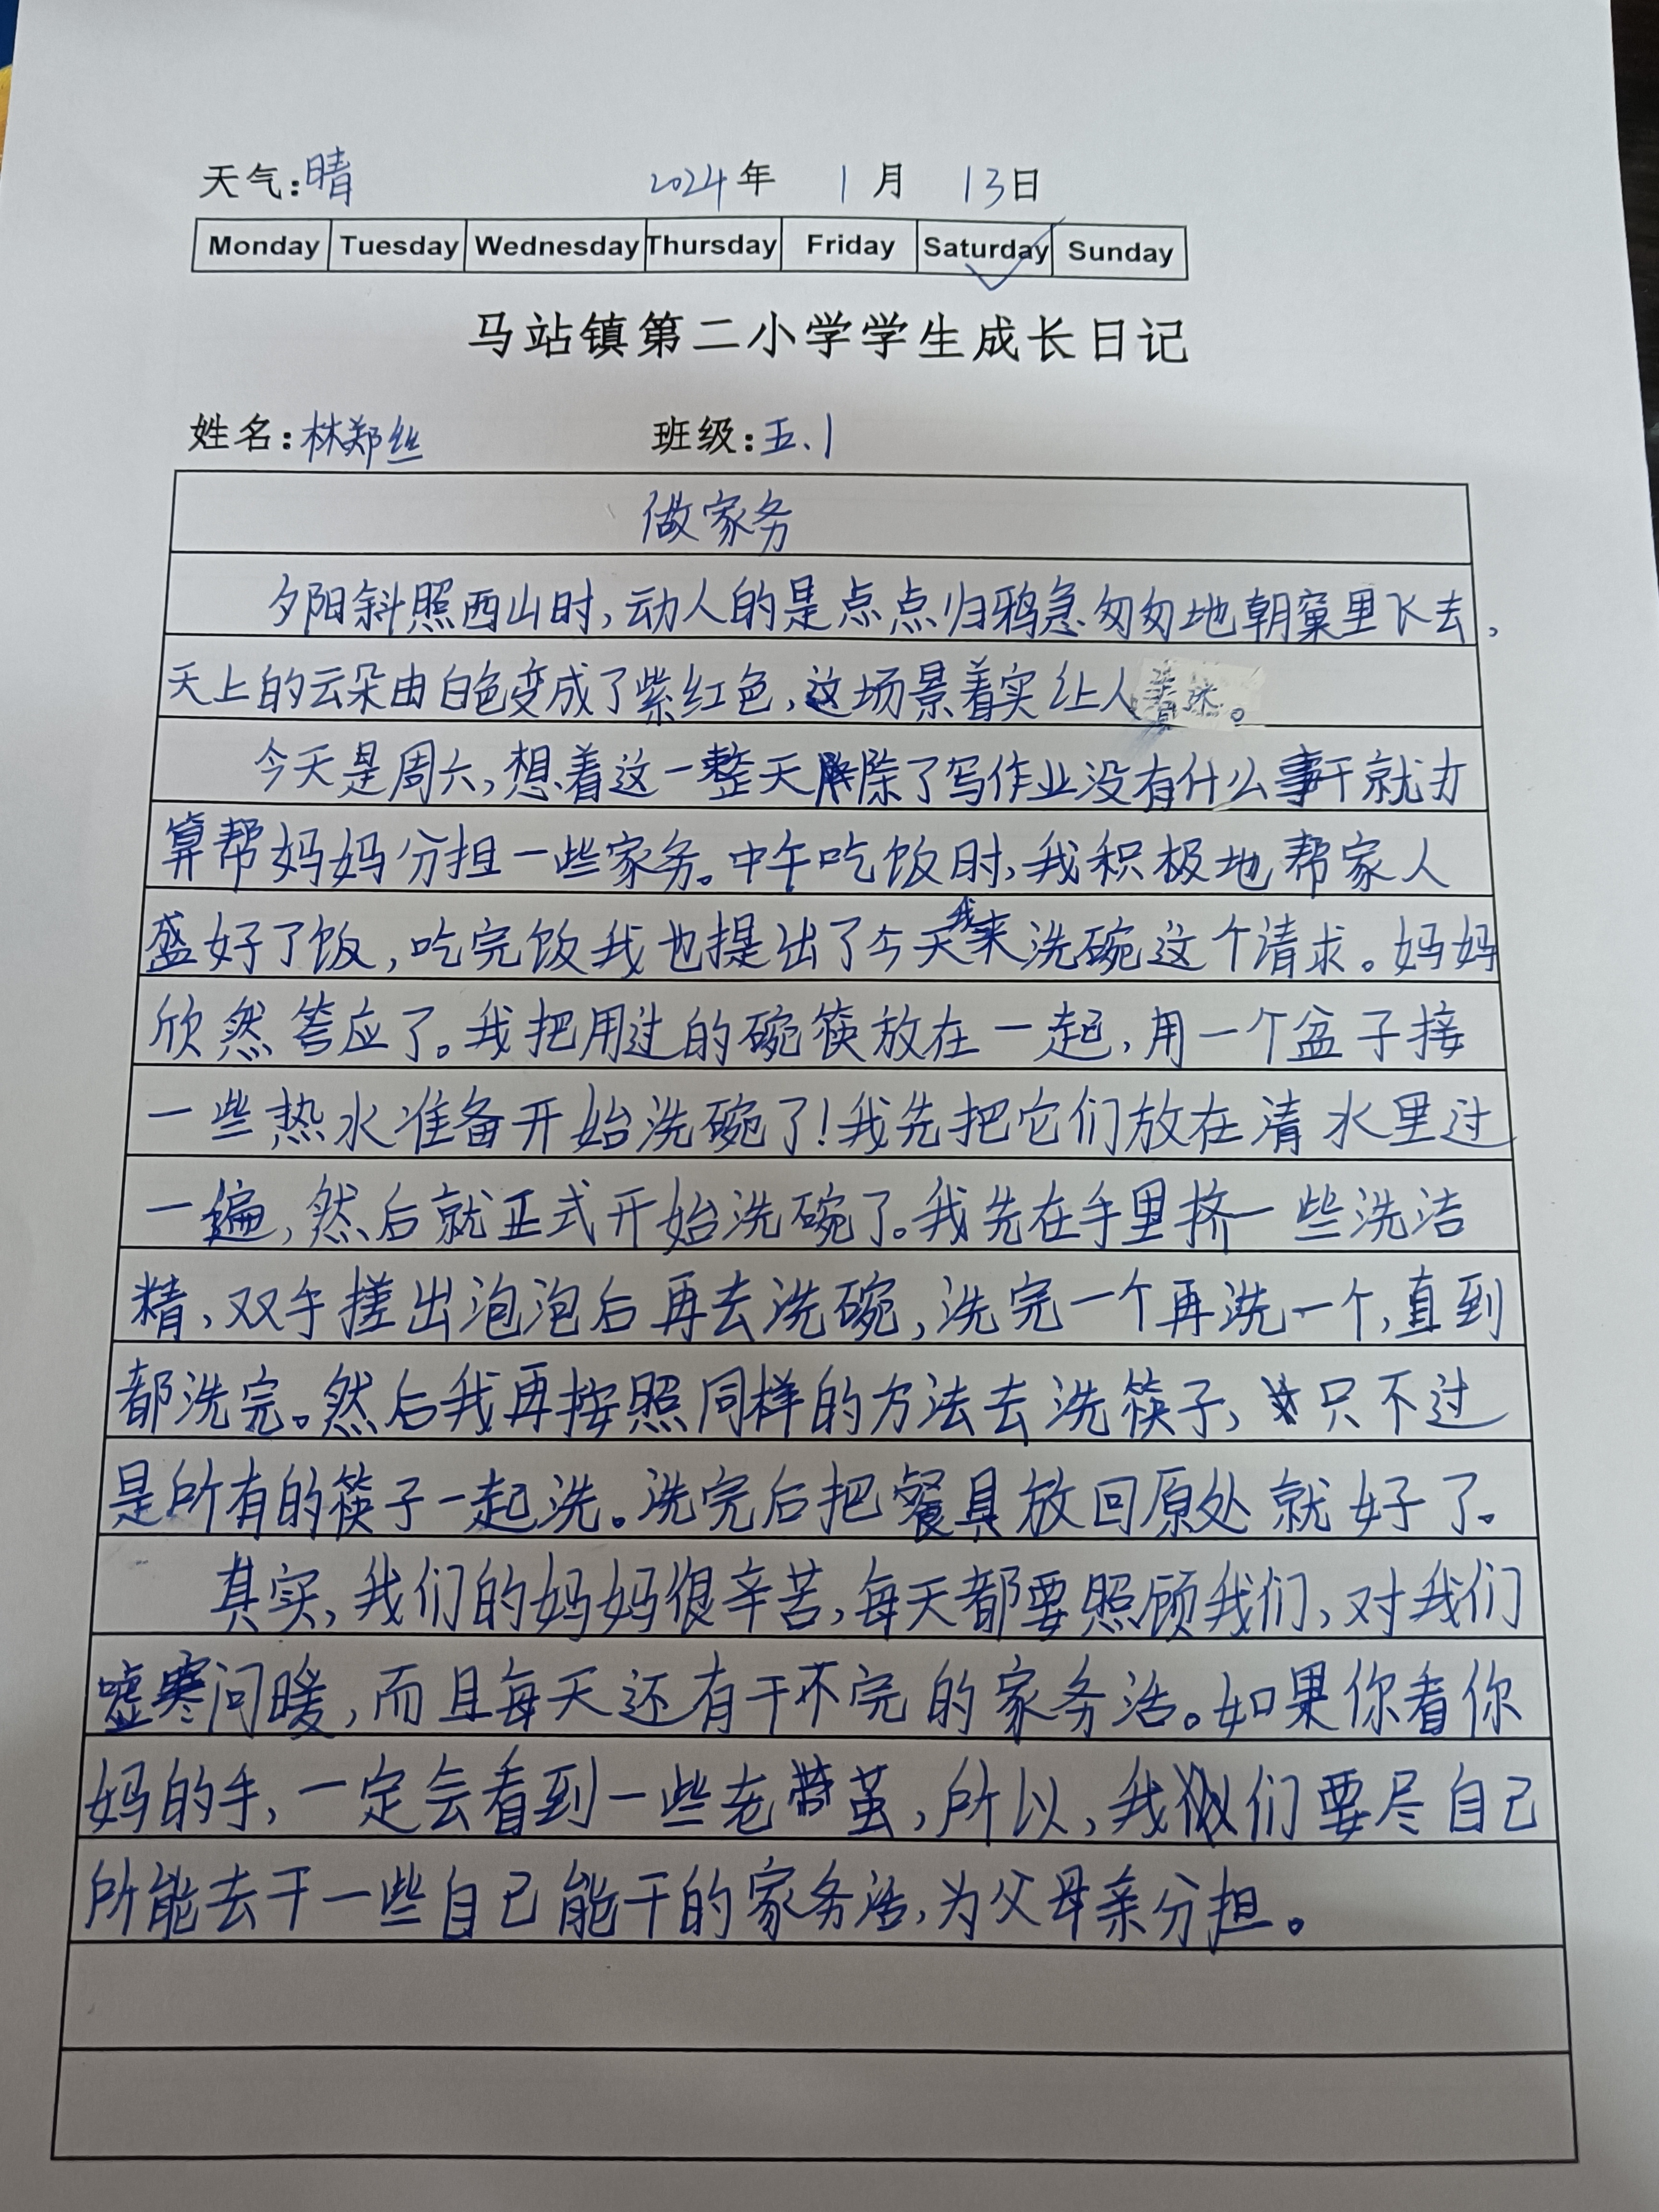 天气:晴 2024年 1月 13日
Monday Tuesday Wednesday Thursday Friday Saturday Sunday
马站镇第二小学学生成长日记
姓名:林郑丝 班级:五.1
做家务
夕阳斜照西山时,动人的是点点归鸦急匆匆地朝窠里飞去,
天上的云朵由白色变成了紫红色,这场景着实让人。
今天是周六,想着这一整天除了写作业没有什么事干就打
算帮妈妈分担一些家务。中午吃饭时,我积极地帮家人
盛好了饭,吃完饭我也提出了今天我来洗碗这个请求。妈妈
欣然答应了。我把用过的碗筷放在一起,用一个盆子接
一些热水准备开始洗碗了!我先把它们放在清水里过
一遍,然后就正式开始洗碗了。我先在手里挤一些洗洁
精,双手搓出泡泡后再去洗碗,洗完一个再洗一个,直到
都洗完。然后我再按照同样的方法去洗筷子,只不过
是所有的筷子一起洗。洗完后把餐具放回原处就好了。
其实,我们的妈妈很辛苦,每天都要照顾我们,对我们
嘘寒问暖,而且每天还有干不完的家务活。如果你看你
妈的手,一定会看到一些老茧,所以,我们要尽自己
所能去干一些自己能干的家务活,为父母亲分担。